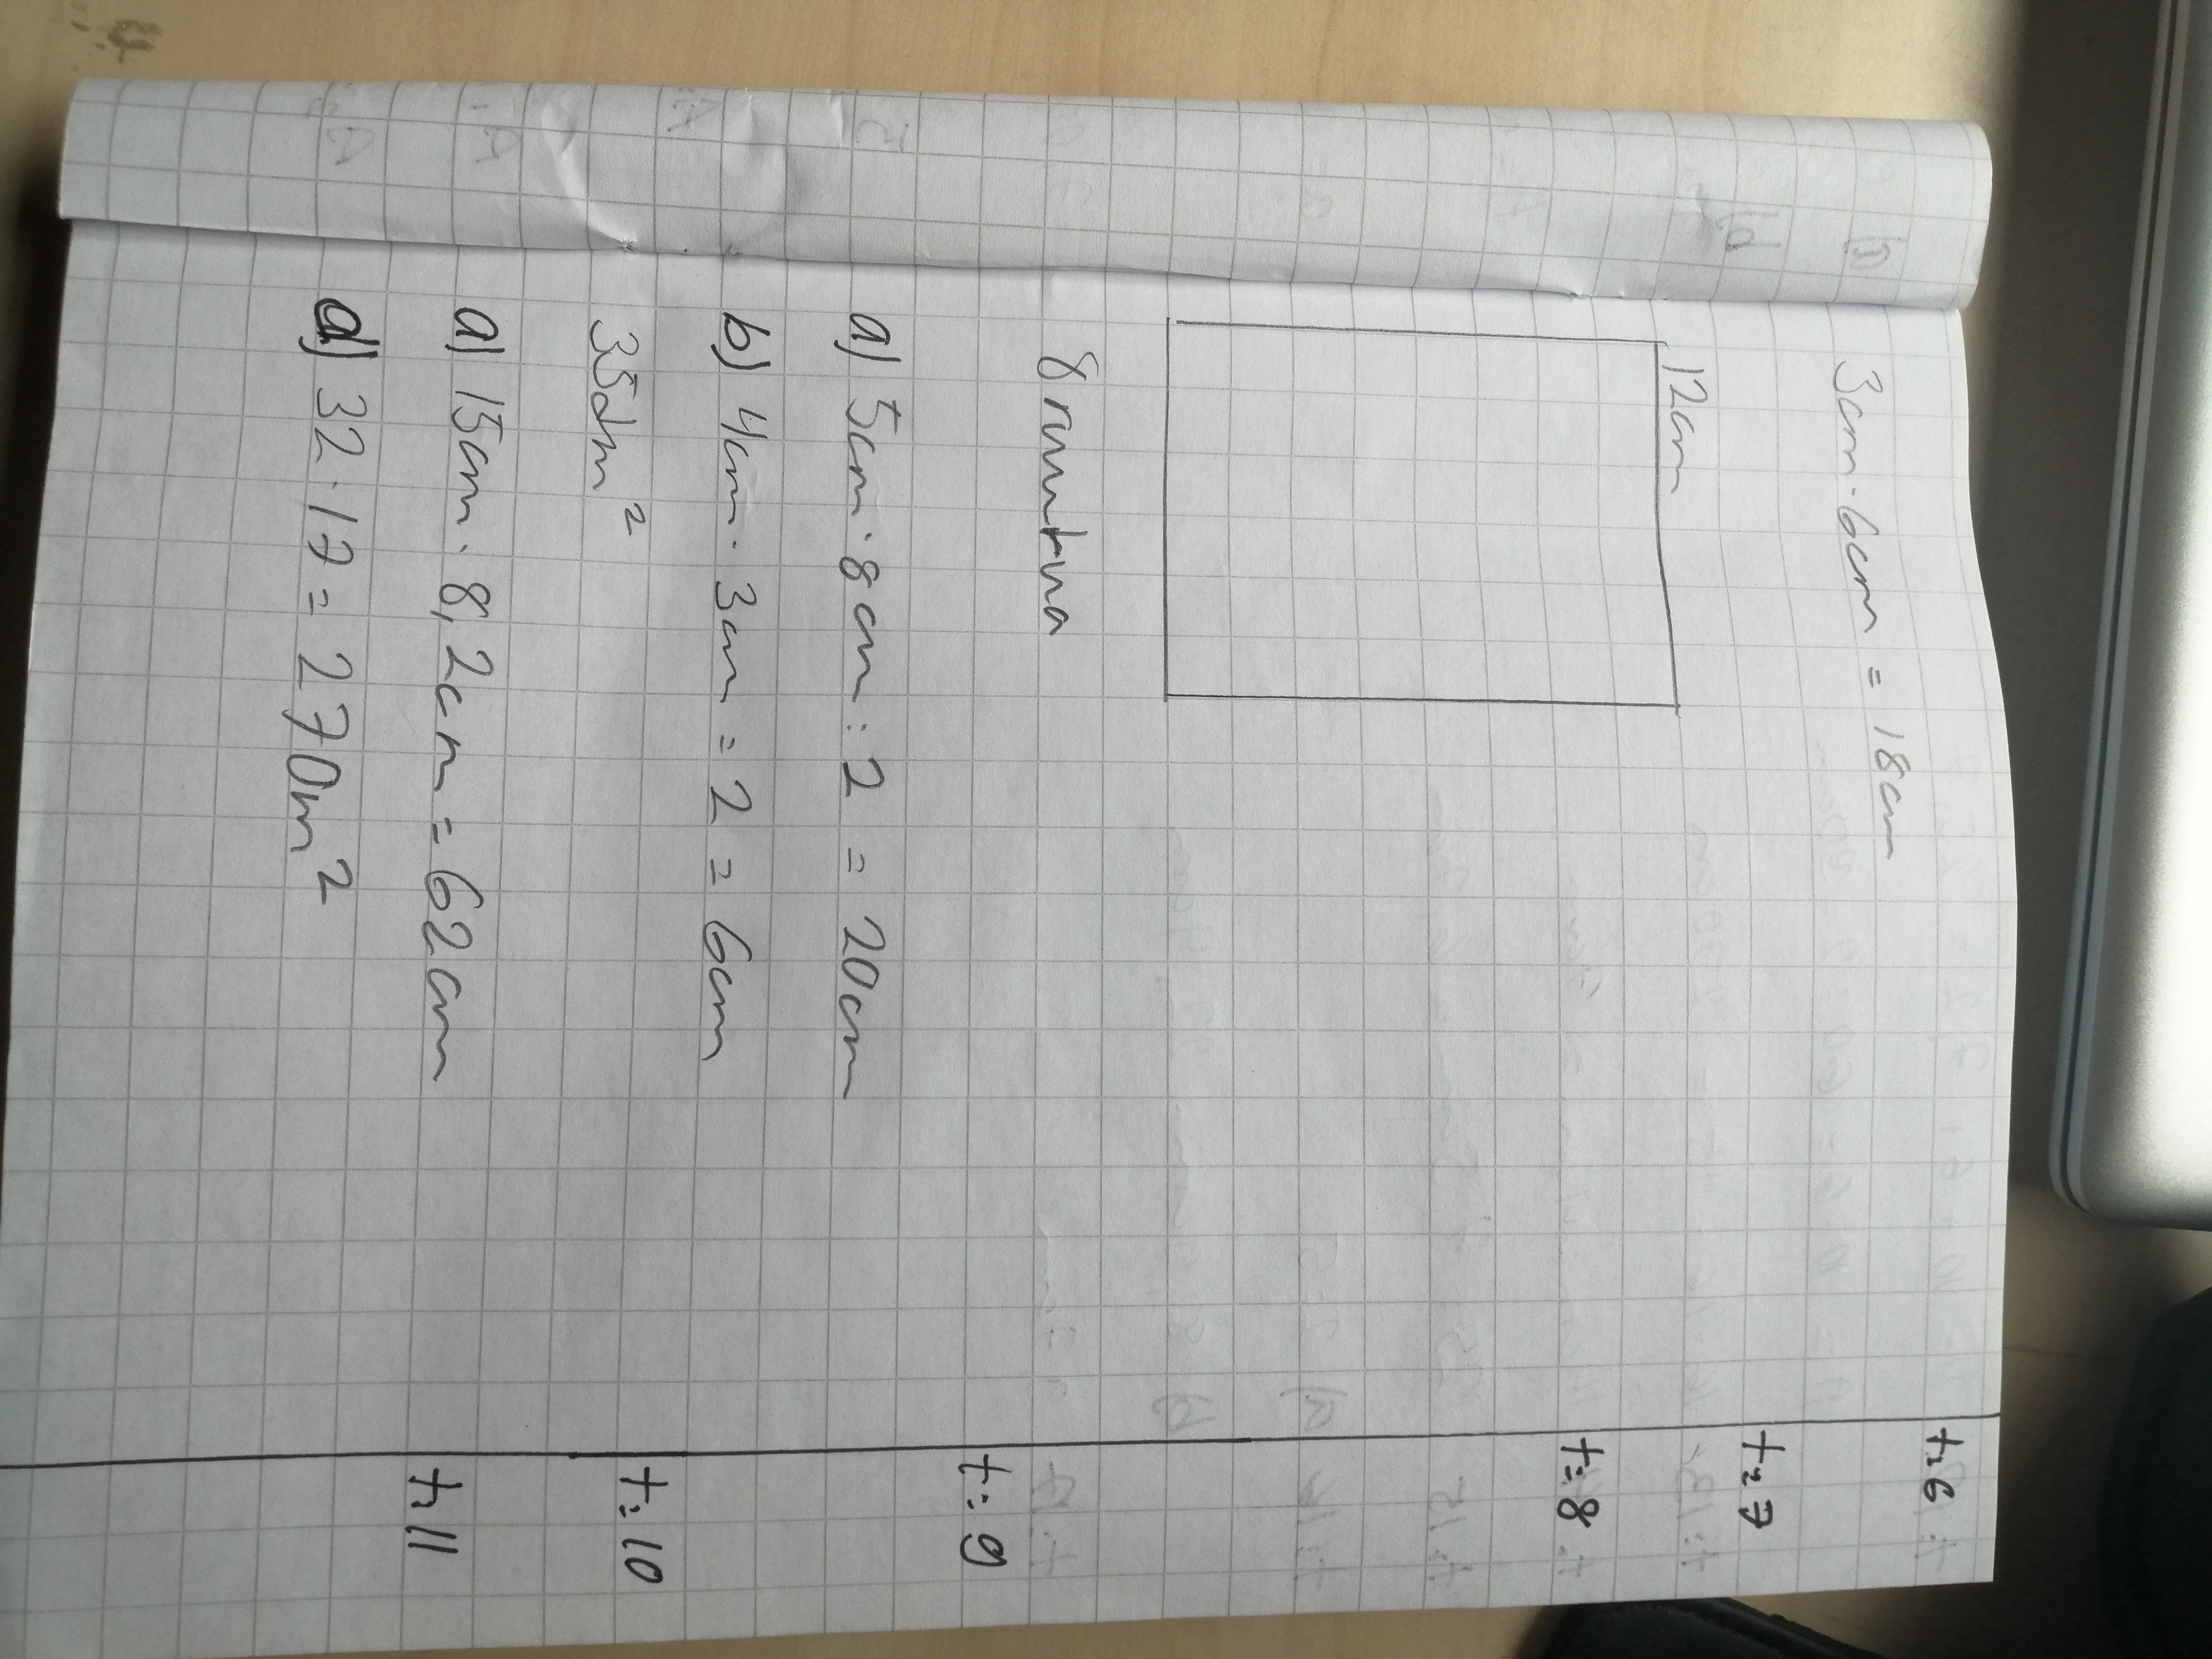 3cm · 6cm = 18cm t:6
12cm t:7
t:8
8 ruutua
a) 5cm · 8cm : 2 = 20cm t:9
b) 4cm · 3cm = 2 = 6cm
35dm² t:10
a) 15cm · 8,2cm = 62cm t:11
d) 32 · 17 = 270m²